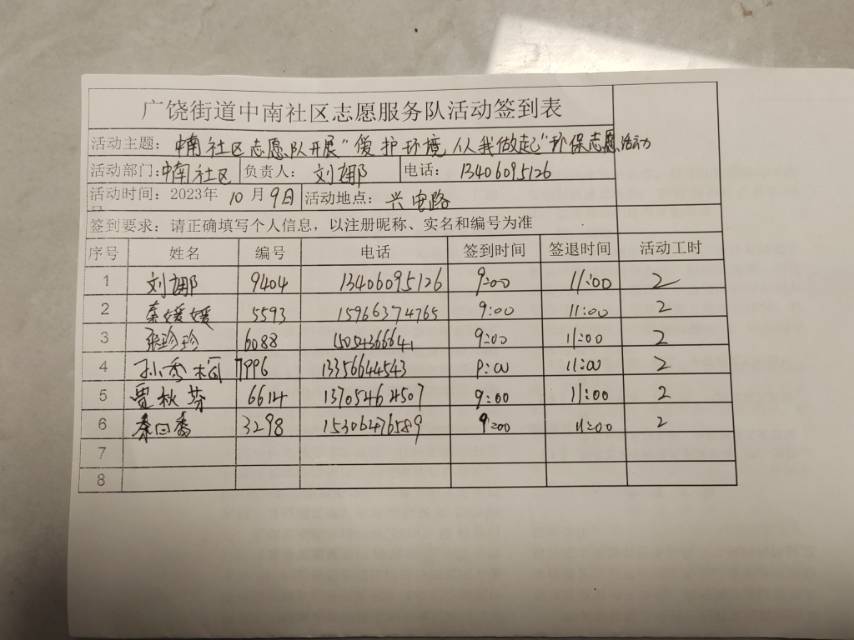 广饶街道中南社区志愿服务队活动签到表
活动主题：中南社区志愿队开展"爱护环境 从我做起"环保志愿活动
活动部门：中南社区 负责人：刘娜 电话：13406095126
活动时间：2023年 10 月 9日 活动地点：兴电路
签到要求：请正确填写个人信息，以注册昵称、实名和编号为准
序号 姓名 编号 电话 签到时间 签退时间 活动工时
1 刘娜 9404 13406095126 9:00 11:00 2
2 秦媛媛 5593 15966374765 9:00 11:00 2
3 张珍珍 6088 9:00 11:00 2
4 孙秀 7996 13356644543 9:00 11:00 2
5 贾秋芬 6614 13705462507 9:00 11:00 2
6 秦 香 3298 15306476589 9:00 11:00 2
7
8